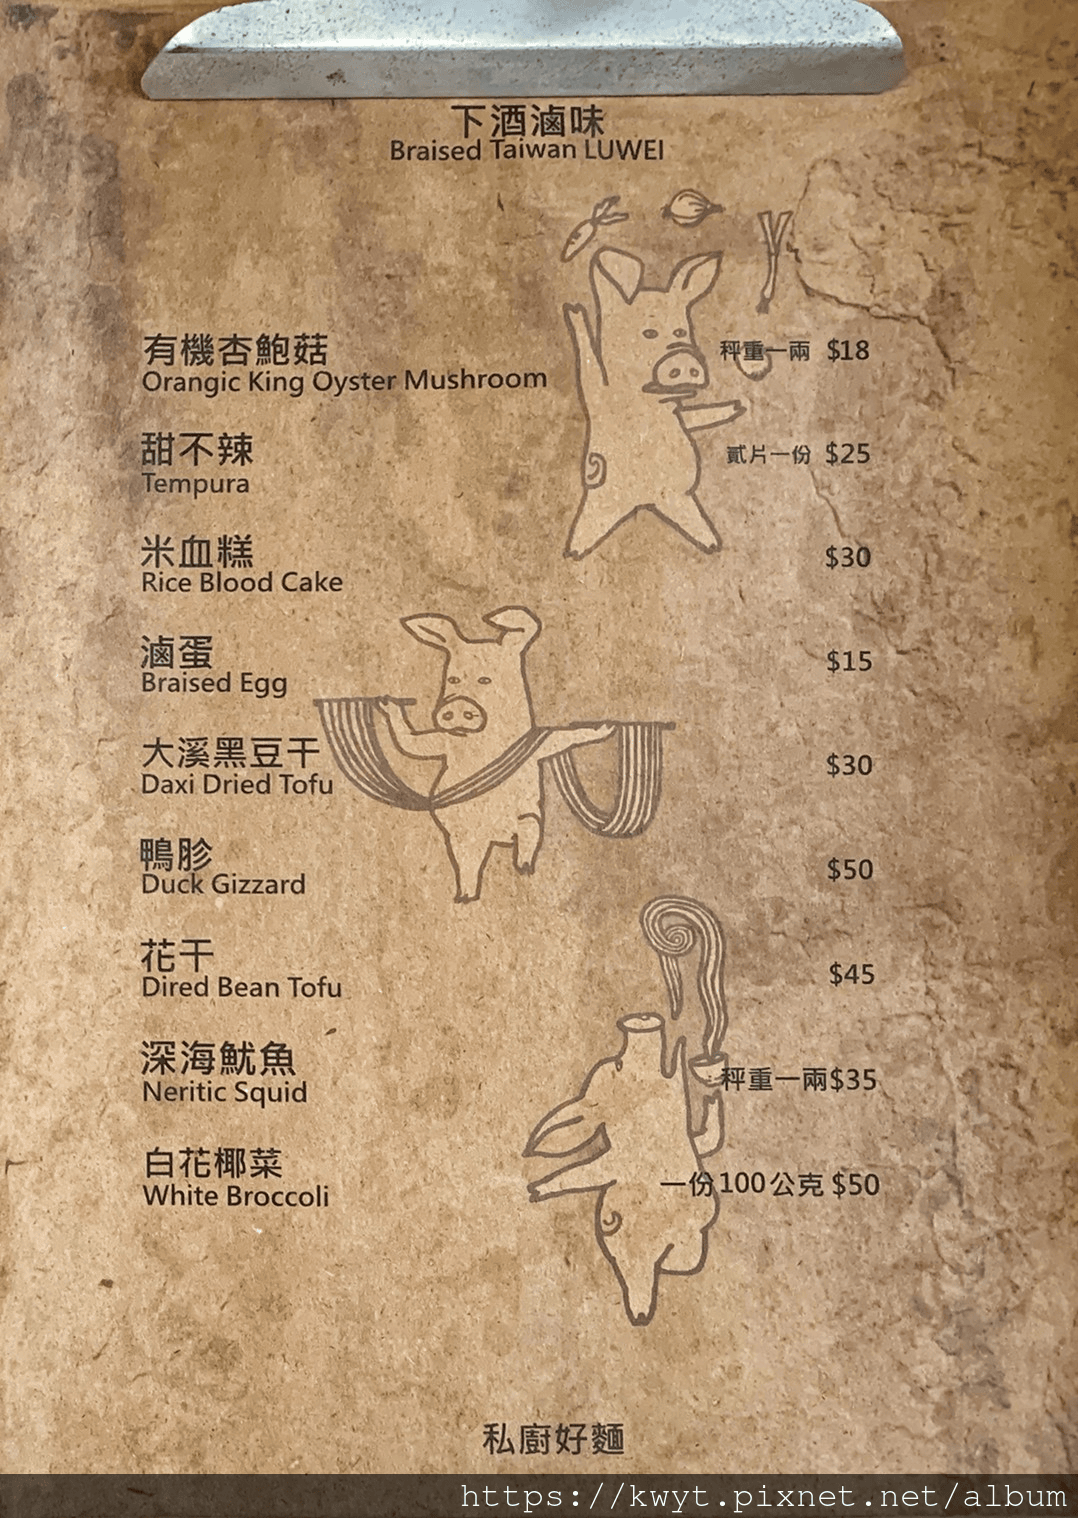 下酒滷味
Braised Taiwan LUWEI
有機杏鮑菇 秤重一兩 $18
Orangic King Oyster Mushroom
甜不辣 貳片一份 $25
Tempura
米血糕 $30
Rice Blood Cake
滷蛋 $15
Braised Egg
大溪黑豆干 $30
Daxi Dried Tofu
鴨胗 $50
Duck Gizzard
花干 $45
Dired Bean Tofu
深海魷魚 秤重一兩$35
Neritic Squid
白花椰菜 一份100公克 $50
White Broccoli
私廚好麵
https://kwyt.pixnet.net/album